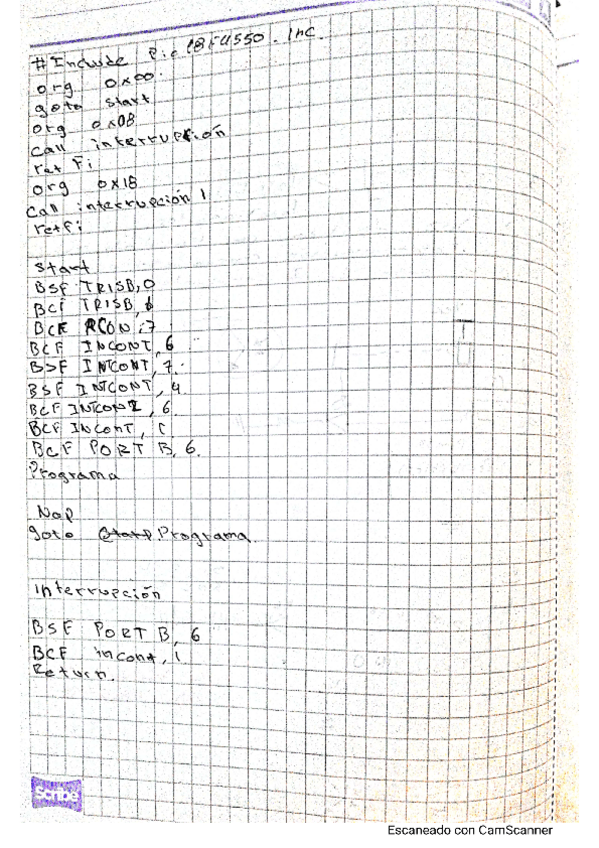 #Include Pic18F4550.Inc.
org 0x00
goto start
org 0x08
call interrupción
retfi
org 0x18
call interrupción 1
retfi
start
BSF TRISB,0
BCF TRISB, 6
BCF RCON,7
BCF INCONT, 6
BSF INTCONT, 7.
BSF INTCONT, 4
BCF INTCON2, 6
BCF INCONT, 1
BCF PORT B, 6.
Programa
Nop
goto Programa.
interrupción
BSF PORT B, 6
BCF incont, 1
Return.
Scribe
Escaneado con CamScanner